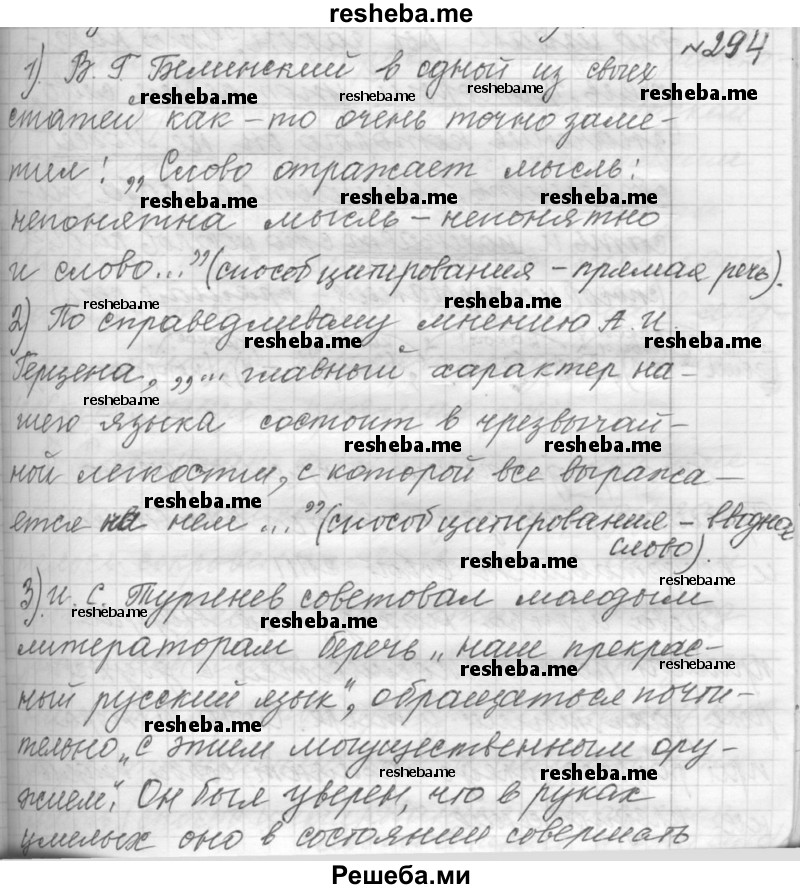 resheba.me
№294
1). В. Г Белинский в одной из своих
resheba.me resheba.me resheba.me resheba.me
статей как-то очень точно заме-
тил: „Слово отражает мысль:
resheba.me resheba.me resheba.me
непонятна мысль – непонятно
и слово..." (способ цитирования – прямая речь).
resheba.me resheba.me
2) По справедливому мнению А. И.
resheba.me resheba.me
Герцена, „... главный характер на-
resheba.me
шего языка состоит в чрезвычай-
resheba.me resheba.me
ной легкости, с которой все выража-
resheba.me
ется на нем ..." (способ цитирования – вводное
слово).
resheba.me
3). И. С. Тургенев советовал молодым
resheba.me resheba.me
литераторам беречь „наш прекрас-
resheba.me resheba.me
ный русский язык", обращаться почти-
resheba.me
тельно „с этим могущественным ору-
resheba.me resheba.me
жием". Он был уверен, что в руках
умелых оно в состоянии совершать
Решеба.ми